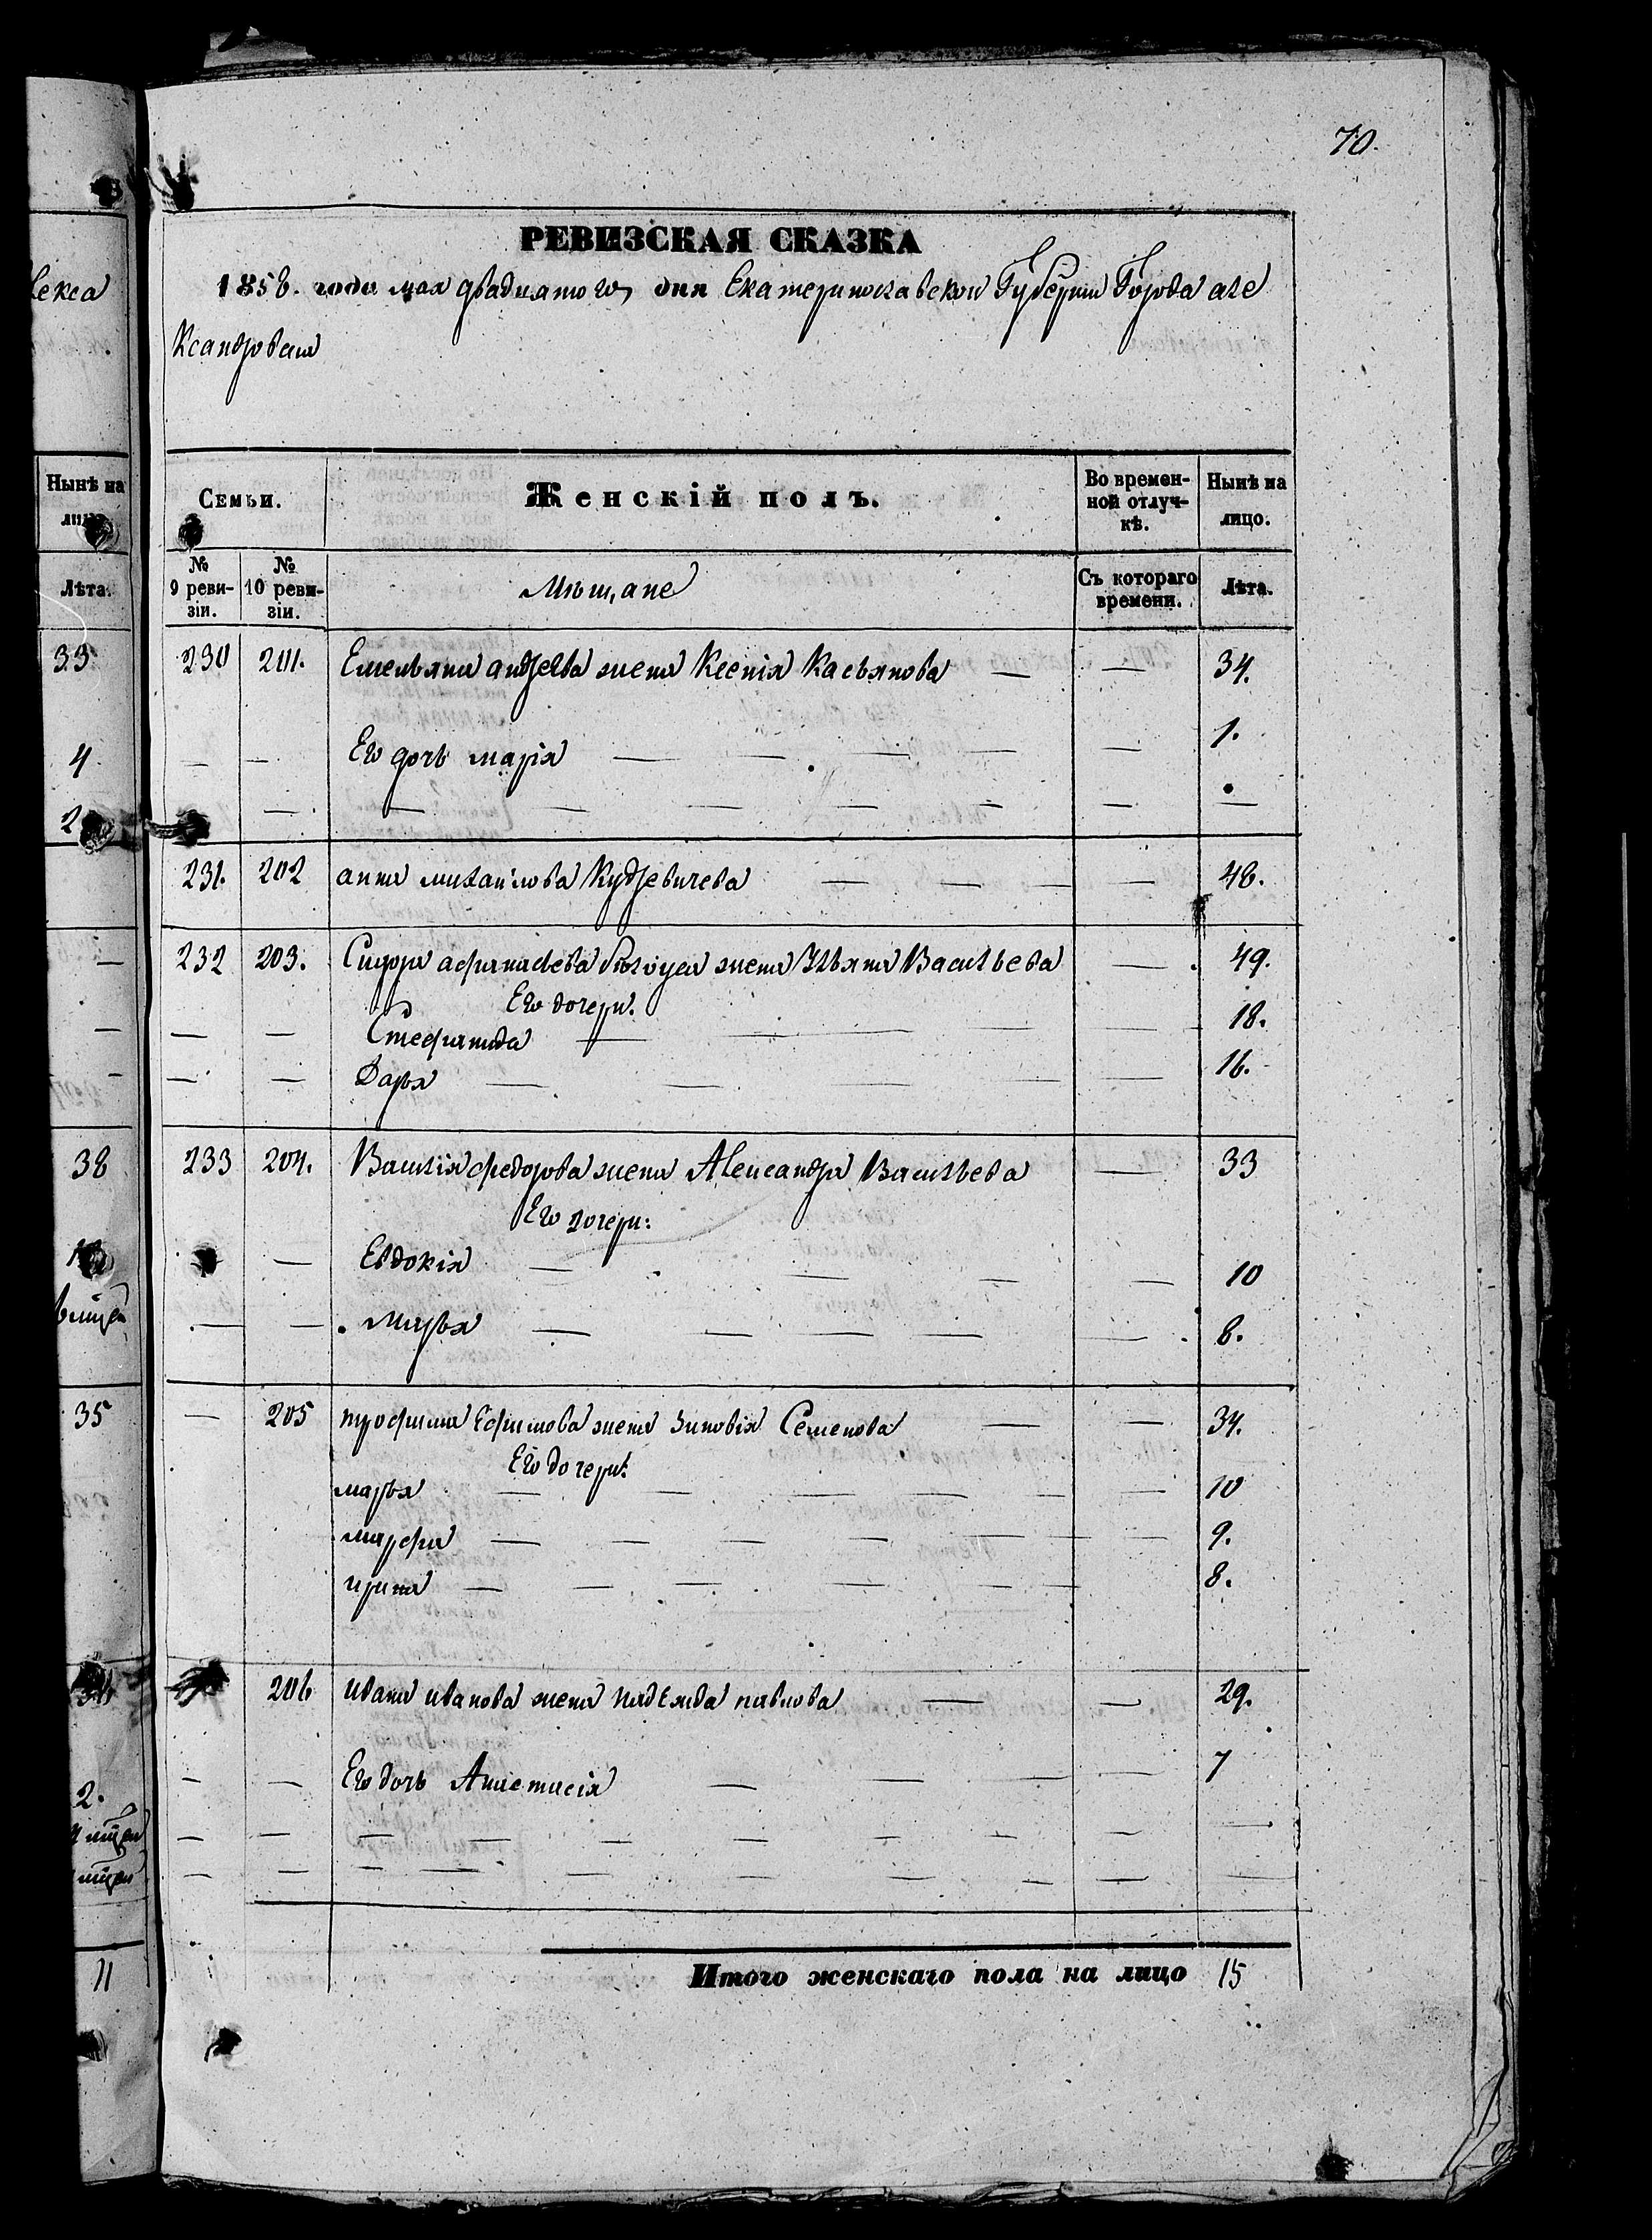 70.
РЕВИЗСКАЯ СКАЗКА
1858. года мая двадцатого дня Екатеринославской Губернии Города але
ксандровска
Семьи. Женскій полъ. Во времен-ной отлуч-кѣ. Нынѣ на лицо.
№ 9 реви-зіи. № 10 реви-зіи. Мѣщане Съ котораго времени. Лѣта.
230 201. Емельяна андреева жена Ксенія Касьянова — — 34.
— — Его дочь марія — — — — 1.
— — — — — — — — —
231. 202 анна михайлова Кудревичева — — — — 48.
232 203. Сидора афанасьева жена Ульяна Васильева — 49.
Его дочери.
— — Стефанида — — — — — 18.
— — Дарья — — — — — 16.
233 204. Василія федорова жена Александра Васильева — 33
Его дочери:
— Евдокія — — — — 10
— — Марья — — — — — 8.
— 205 трофима Ефимова жена Зиновія Семенова — — 34.
Его дочери:
марья — — — — — — 10
марфа — — — — — — 9.
ирина — — — — — — 8.
206 ивана иванова жена надежда павлова — — 29.
— — Его дочь Анастасія — — — — 7
— — — — — — — — — —
— — — — — — — — — —
Итого женскаго пола на лицо 15
лекса
Нынѣ на
лицо
Лѣта.
33
4
2
—
—
—
38
35
2.
11